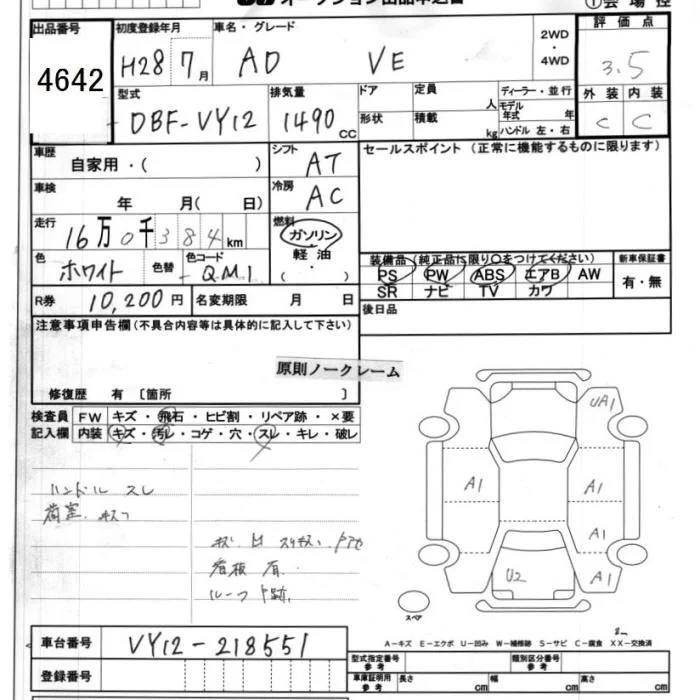 オークション出品申込書
①会場控
出品番号
4642
初度登録年月
H28 7月
車名・グレード
AD VE
2WD
・
4WD
評価点
3.5
外装 内装
C C
型式
DBF-VY12
排気量
1490 CC
ドア
定員
人
形状
積載
kg
ディーラー・並行
モデル年式 年
ハンドル 左・右
車歴
自家用・( )
シフト
AT
車検
年 月( 日)
冷房
AC
走行
16万0千384km
燃料
ガソリン
軽油
( ・ )
色
ホワイト
色替
色コード
QM1
R券
10,200円
名変期限 月 日
セールスポイント(正常に機能するものに限ります)
装備品(純正品に限り○をつけてください)
PS PW ABS エアB AW
SR ナビ TV カワ
新車保証書
有・無
後日品
注意事項申告欄(不具合内容等は具体的に記入して下さい)
原則ノークレーム
修復歴 有〔箇所 〕
検査員
記入欄
FW キズ・飛石・ヒビ割・リペア跡・×要
内装 キズ・汚レ・コゲ・穴・スレ・キレ・破レ
ハンドル スレ
荷室 キズ
看板 有
ルーフ 跡
UA1
A1
A1
A1
A1
U2
スペア
A-キズ E-エクボ U-凹み W-補修跡 S-サビ C-腐食 XX-交換済
車台番号
VY12-218551
登録番号
型式指定番号
参考
類別区分番号
参考
車庫証明用
参考
長さ cm
幅 cm
高さ cm